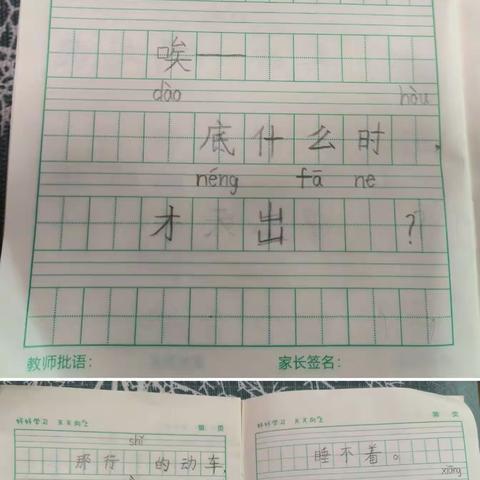 唉——
dào hòu
底什么时
néng fā ne
才 出 ?
教师批语： 家长签名：
好好学习 天天向上 第 页
shǐ
那行 的动车
好好学习 天天向上 第 页
睡不着。
xiōng